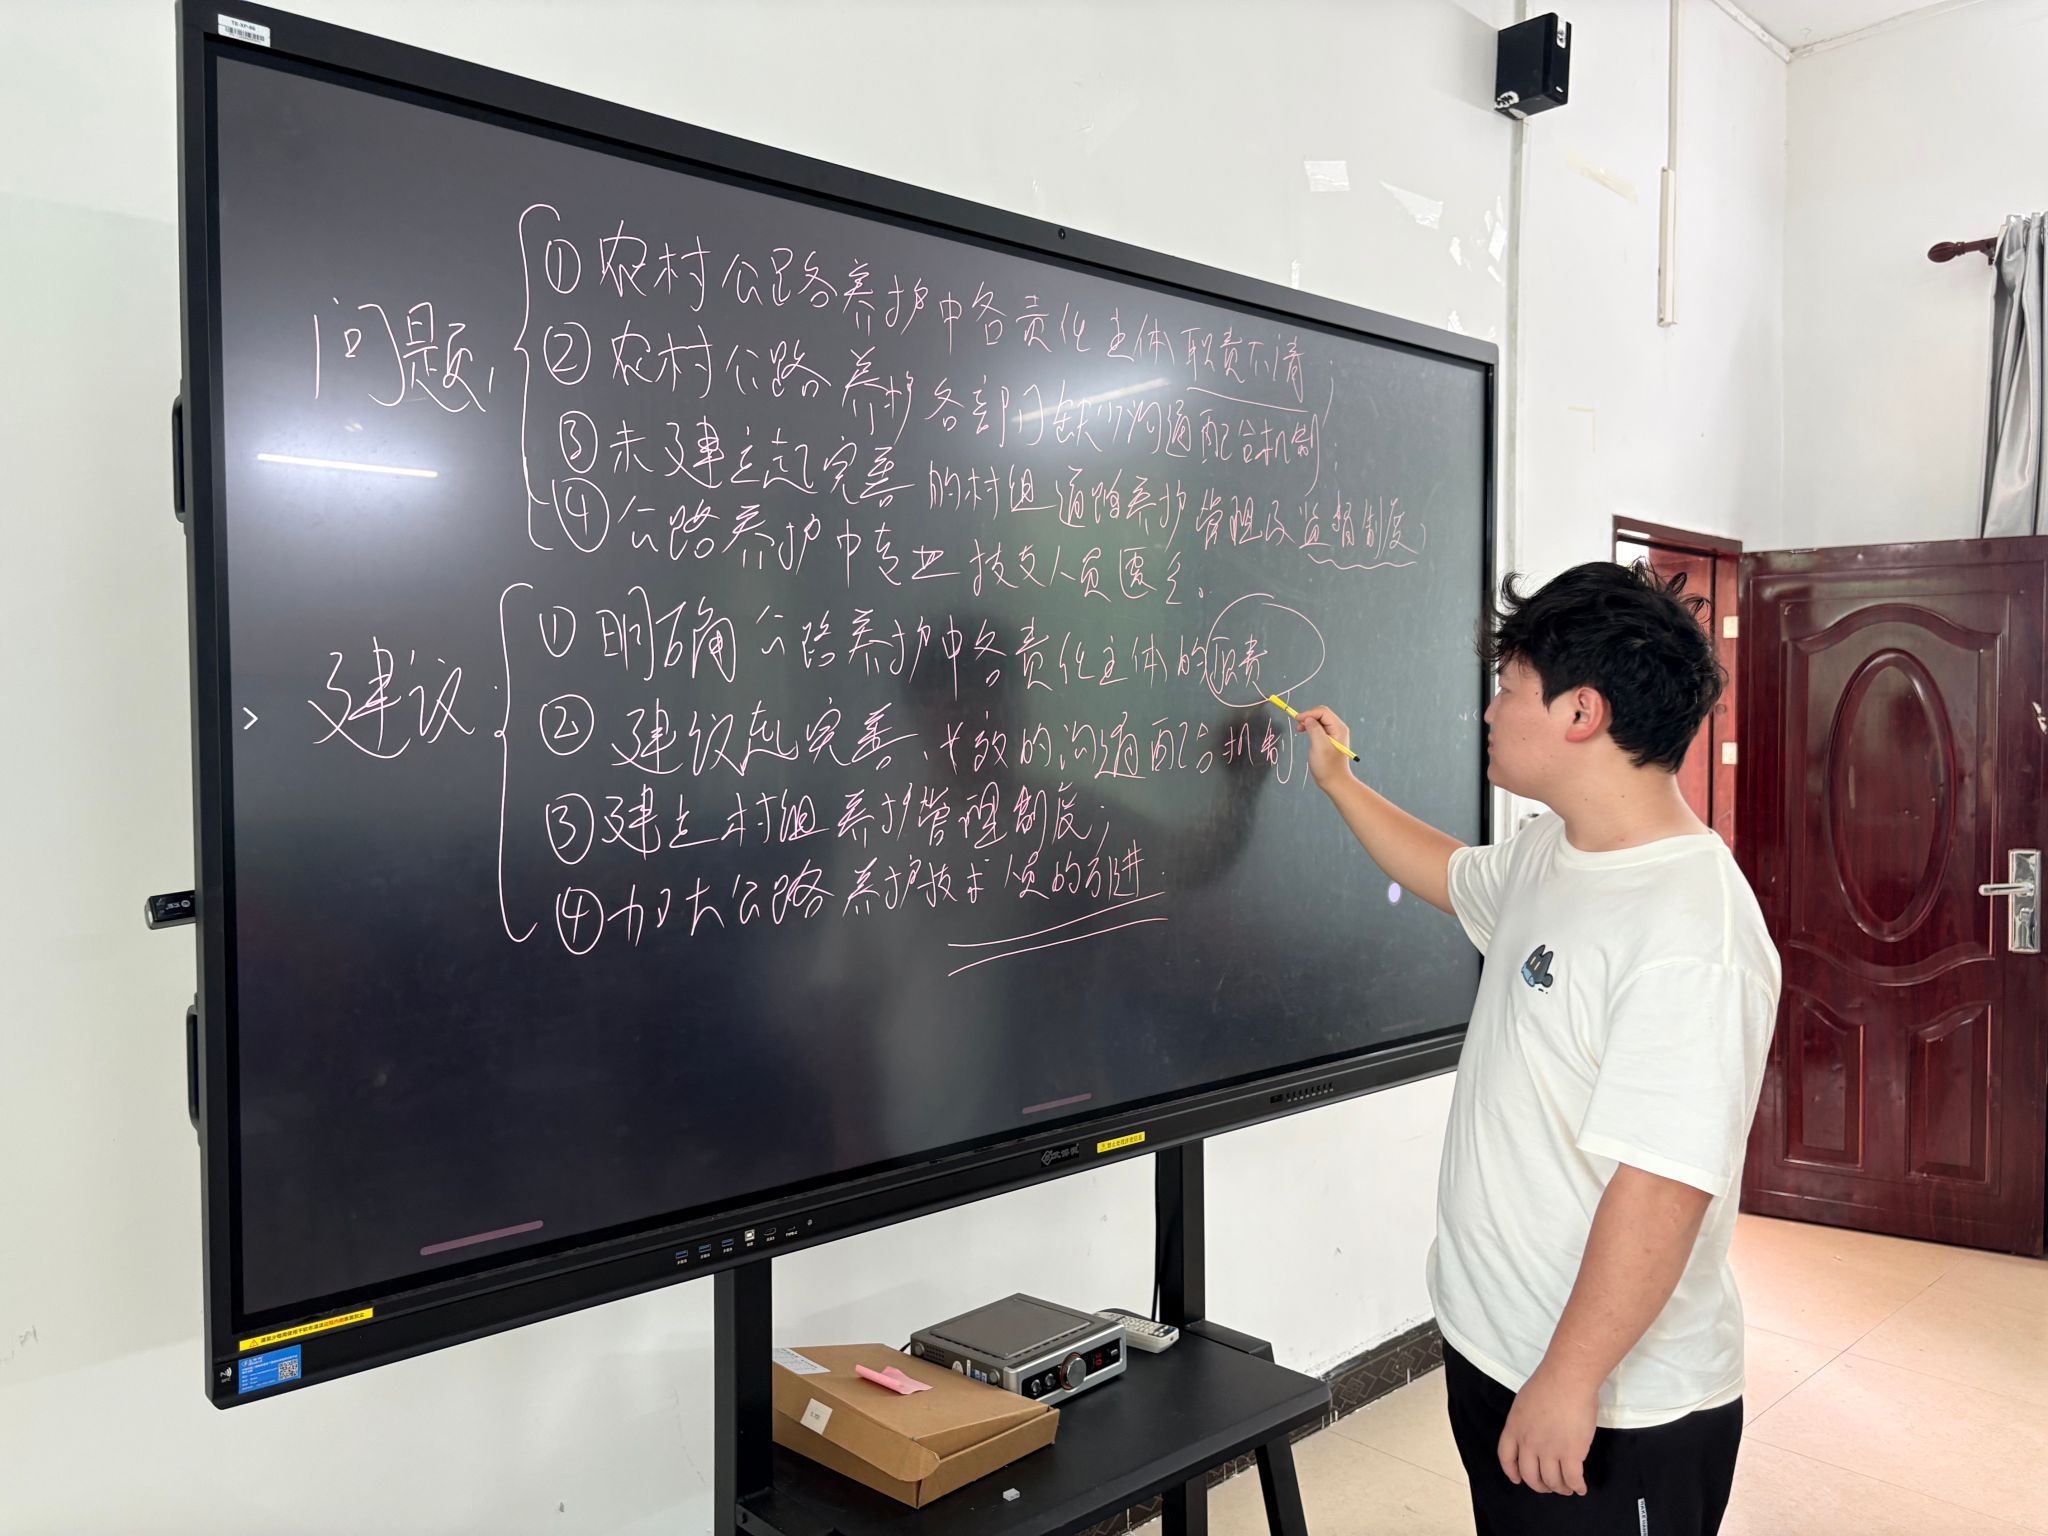 TB-XP-86
问题:
①农村公路养护中各责任主体职责不清;
②农村公路养护各部门缺少沟通配合机制;
③未建立起完善的村组道路养护管理及监督制度;
④公路养护中专业技支人员匮乏。
建议:
①明确公路养护中各责任主体的职责.
②建议起完善、有效的沟通配合机制;
③建立村组养护管理制度;
④加大公路养护技术人员的引进.